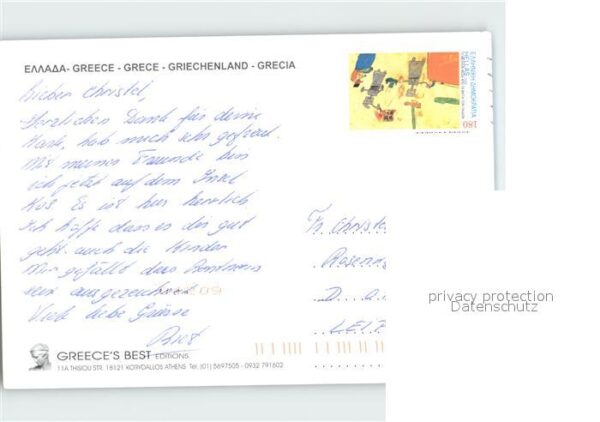 ΕΛΛΑΔΑ - GREECE - GRECE - GRIECHENLAND - GRECIA
ΕΛΛΗΝΙΚΗ ΔΗΜΟΚΡΑΤΙΑ
HELLAS
180
Lieber Christel,
Herzlichen Dank für deine
Karte, hab mich sehr gefreut.
Mit meiner Freundin bin
ich jetzt auf dem Insel
Kos Es ist hier herrlich
Ich hoffe dass es dir gut
geht. auch die Kinder
Mir gefällt das
sein ausgezeichnet
Viele liebe Grüsse
Fr. Christel
D.
LEIP
privacy protection
Datenschutz
GREECE'S BEST EDITIONS
11A THISIOU STR. 18121 KORYDALLOS ATHENS Tel. (01) 5697505 - 0932 791602